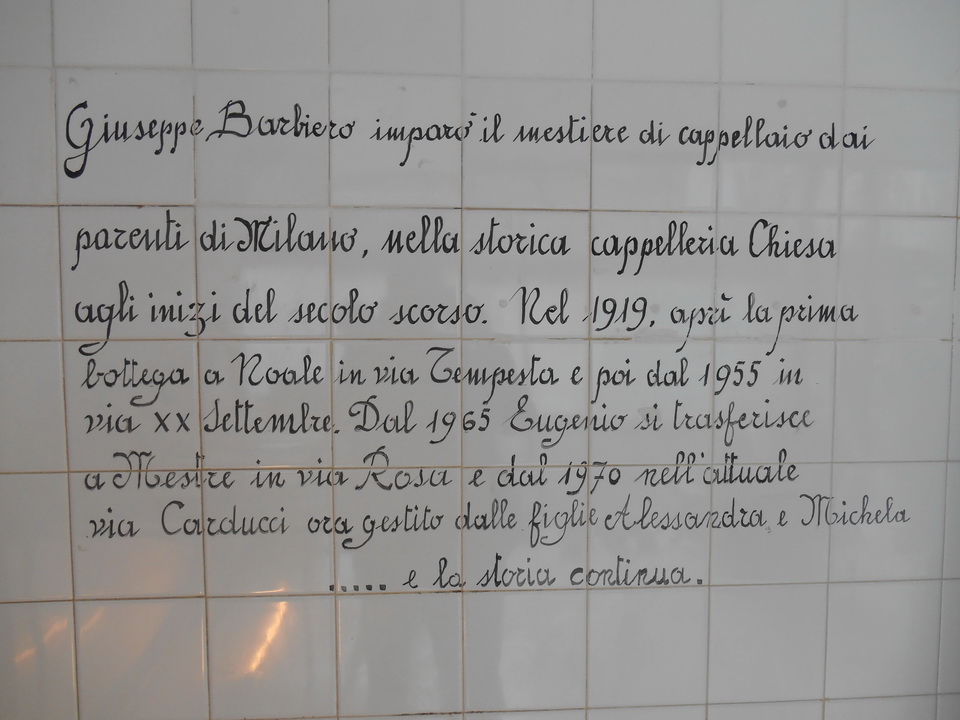 Giuseppe Barbiero imparò il mestiere di cappellaio dai
parenti di Milano, nella storica cappelleria Chiesa
agli inizi del secolo scorso. Nel 1919, aprì la prima
bottega a Noale in via Tempesta e poi dal 1955 in
via XX Settembre. Dal 1965 Eugenio si trasferisce
a Mestre in via Rosa e dal 1970 nell'attuale
via Carducci ora gestito dalle figlie Alessandra e Michela
..... e la storia continua.